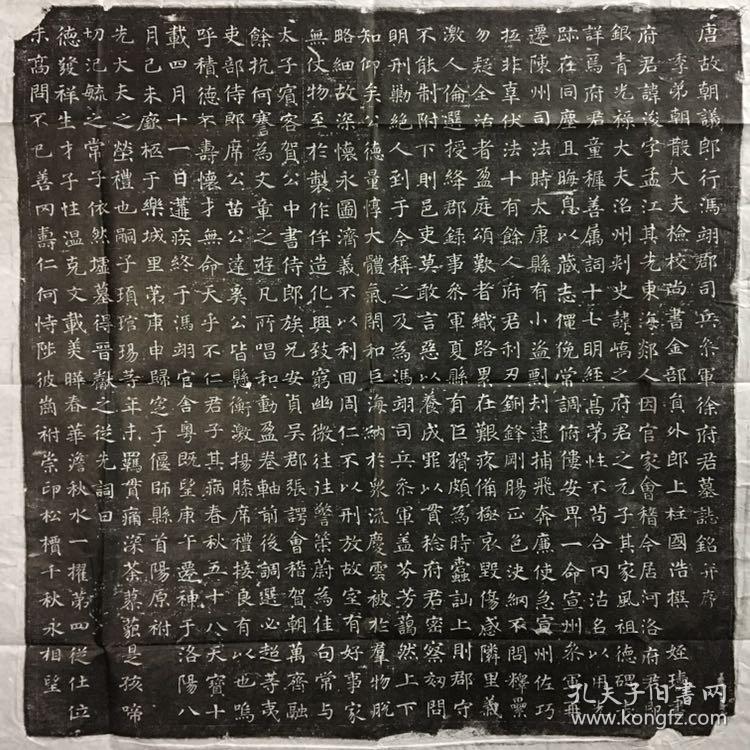 唐故朝議郎行馮翊郡司兵參軍徐府君墓誌銘并序
季弟朝散大夫檢校尚書金部員外郎上柱國浩撰 姪璹
府君諱浚字孟江其先東海郯人因官家會稽今居河洛府君
銀青光祿大夫洺州刺史諱嶠之府君之元子其家風祖德碑
詳焉府君童穉善属詞十七明經高第性不苟合同沽名以用
跡在同塵且晦息以藏志僶俛常調俯僂安卑一命宣州參軍
遷陳州司法時太康縣有小盜剽刦逮捕飛奔廉使急宣州佐巧
抵非辜伏法十有餘人府君利刃銅鋒剛腸正色決網不問釋纍
勿疑全治者盈庭頌歎者織路累在艱疚備極哀毀傷感隣里義
激人倫選授絳郡錄事參軍夏縣有巨猾頗為時蠹訕上則郡守
不能制附下則邑吏莫敢言惡以養成罪以貫稔府君密察劾問
明刑勦絕人到于今稱之及為馮翊司兵參軍蓋芬芳藹然上下
知仰矣公德量惇大體氣閑和巨海納於衆流慶雲被於羣物脫
略細故深懷永圖濟義不以利回周仁不以刑放故室有好事家
無仗物至於製作侔造化興致窮幽微往往警策蔚為佳句常与
太子賓客賀公中書侍郎族兄安貞吳郡張諤會稽賀朝萬齊融
餘杭何謇為文章之遊凡所唱和動盈卷軸前後調選必超等夷
吏部侍郎席公苗公達奚公皆懸衡激揚膝席禮接良有以也嗚
呼積德不壽懷才無命天乎不仁君子其病春秋五十八天寶十
載四月十一日遘疾終于馮翊官舍粵既望庚午遷神于洛陽八
月己未窆柩于樂城里第庚申歸窆于偃師縣首陽原祔
先大夫之塋禮也嗣子頊琯瑒等年未羈貫痛深荼蓼藐是孩啼
切記毓之常子依然墟墓得晉獻之從先詞曰
德發祥生才子性温克文載美曄春華澹秋水一擢第四從仕位
未高問不已善罔壽仁何恃陟彼崗祔崇邙松檟千秋永相望
孔夫子旧書网
www.kongfz.com